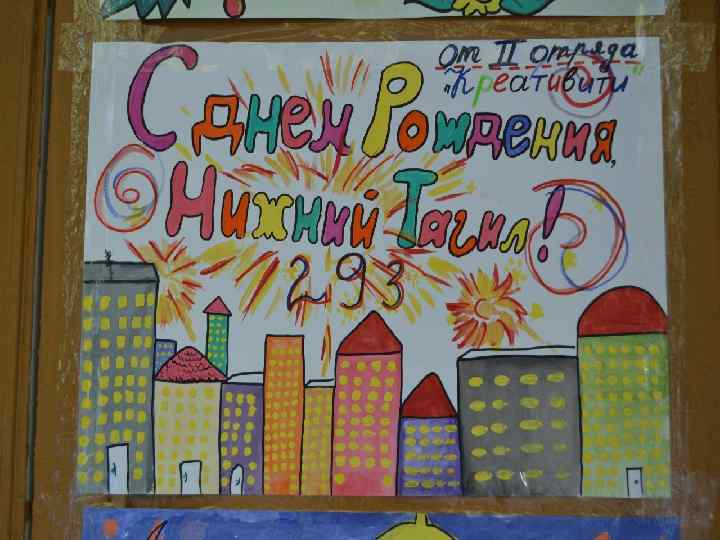 от II отряда
„Креативити"
С днем Рождения,
Нижний Тагил!
293